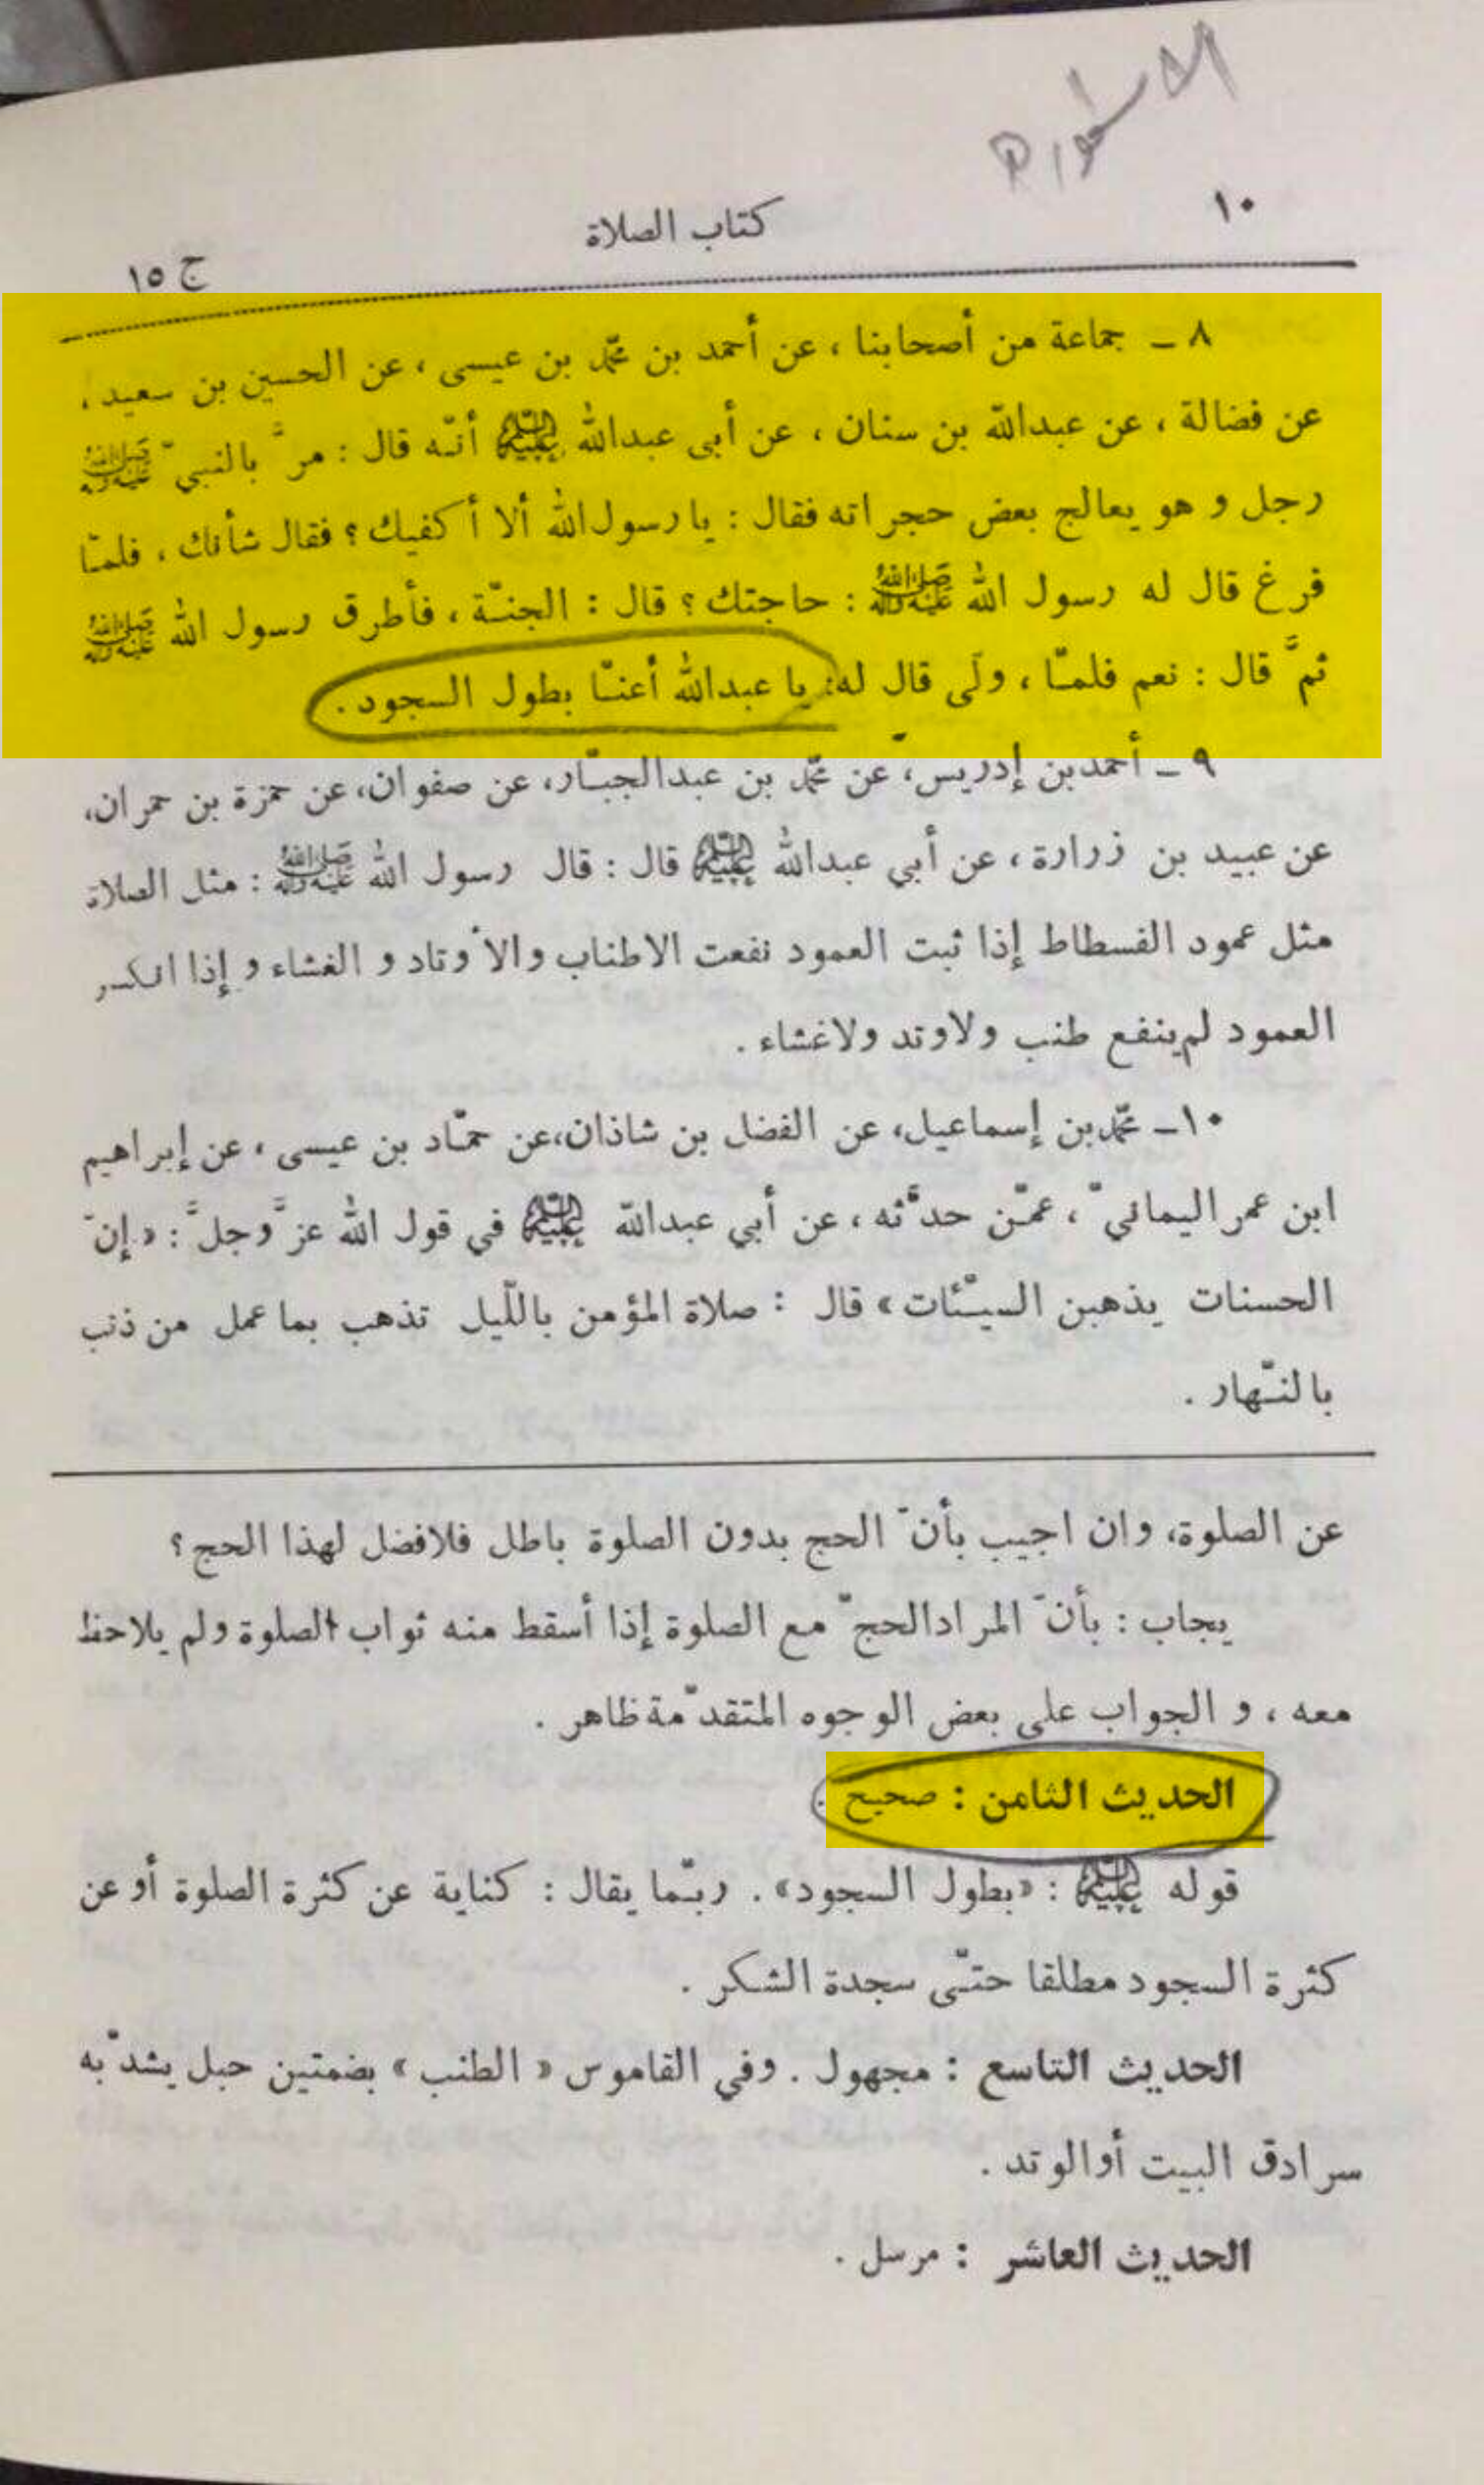 ١٠
كتاب الصلاة
ج ١٥
٨ ـ جماعة من أصحابنا ، عن أحمد بن محمّد بن عيسى ، عن الحسين بن سعيد ،
عن فضالة ، عن عبدالله بن سنان ، عن أبى عبدالله عليه السلام أنّه قال : مرَّ بالنبيّ صلى الله عليه وآله
رجل و هو يعالج بعض حجراته فقال : يا رسول الله ألا أكفيك ؟ فقال شأنك ، فلمّا
فرغ قال له رسول الله صلى الله عليه وآله : حاجتك ؟ قال : الجنّة ، فأطرق رسول الله صلى الله عليه وآله
ثمَّ قال : نعم فلمّا ، ولّى قال له: يا عبدالله أعنّا بطول السجود .
٩ ـ أحمد بن إدريس، عن محمّد بن عبدالجبّار، عن صفوان، عن حمزة بن حمران،
عن عبيد بن زرارة ، عن أبي عبدالله عليه السلام قال : قال رسول الله صلى الله عليه وآله : مثل الصلاة
مثل عمود الفسطاط إذا ثبت العمود نفعت الاطناب والأوتاد و الغشاء و إذا انكسر
العمود لم ينفع طنب ولاوتد ولاغشاء .
١٠ـ محمّد بن إسماعيل، عن الفضل بن شاذان،عن حمّاد بن عيسى ، عن إبراهيم
ابن عمر اليمانيّ ، عمّن حدَّثه ، عن أبي عبدالله عليه السلام في قول الله عزَّوجلَّ : « إنّ
الحسنات يذهبن السيّئات » قال : صلاة المؤمن باللّيل تذهب بما عمل من ذنب
بالنّهار .
عن الصلوة، وان اجيب بأنّ الحج بدون الصلوة باطل فلافضل لهذا الحج ؟
يجاب : بأنّ المرادالحجّ مع الصلوة إذا أسقط منه ثواب الصلوة ولم يلاحظ
معه ، و الجواب على بعض الوجوه المتقدّمة ظاهر .
الحديث الثامن : صحيح .
قوله عليه السلام : «بطول السجود» . ربّما يقال : كناية عن كثرة الصلوة أو عن
كثرة السجود مطلقا حتّى سجدة الشكر .
الحديث التاسع : مجهول . وفي القاموس « الطنب » بضمتين حبل يشدّ به
سرادق البيت أوالوتد .
الحديث العاشر : مرسل .